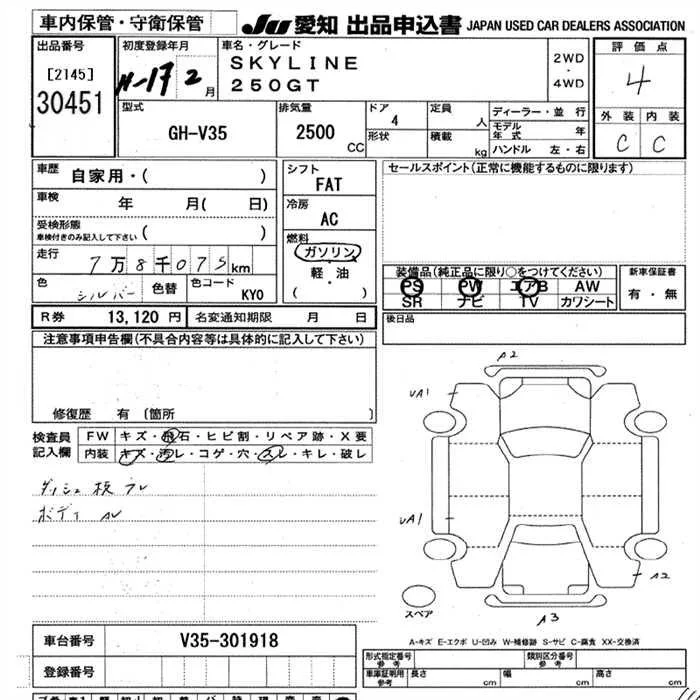 車内保管・守衛保管
JU 愛知 出品申込書 JAPAN USED CAR DEALERS ASSOCIATION
出品番号
[2145]
30451
初度登録年月
H-17 2 月
車名・グレード
SKYLINE
250GT
2WD
・
4WD
評価点
4
外装 内装
C C
型式
GH-V35
排気量
2500
CC
ドア
4
形状
定員
人
積載
kg
ディーラー・並行
モデル
年式 年
ハンドル 左・右
車歴
自家用・( )
車検
年 月( 日)
受検形態
車検付きのみ記入して下さい ( )
走行
7万8千075km
色
シルバー
色替
色コード
KY0
シフト
FAT
冷房
AC
燃料
ガソリン
軽・油
( )
セールスポイント(正常に機能するものに限ります)
装備品(純正品に限り○をつけてください)
PS PW エアB AW
SR ナビ TV カワシート
新車保証書
有・無
R券 13,120 円 名変通知期限 月 日
後日品
注意事項申告欄(不具合内容等は具体的に記入して下さい)
修復歴 有 〔箇所 〕
検査員
記入欄
FW キズ・飛石・ヒビ割・リペア跡・X要
内装 キズ・汚レ・コゲ・穴・スレ・キレ・破レ
ボディ AU
A2
UA1
UA1
A2
A3
スペア
A-キズ E-エクボ U-凹み W-補修跡 S-サビ C-腐食 XX-交換済
車台番号 V35-301918
登録番号
形式指定番号
参考
類別区分番号
参考
車庫証明用
参考
長さ cm 幅 cm 高さ cm